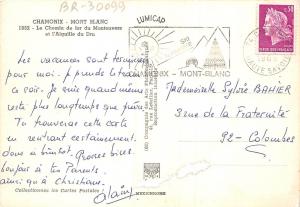 BR-30099
CHAMONIX - MONT BLANC
1882 - Le Chemin de fer du Montenvers
et l'Aiguille du Dru
LUMICAP
CHAMONIX - MONT-BLANC
HAUTE SAVOIE
0,30
Les vacances sont terminées
pour moi. Je prends le train
ce soir. Je suis quand même
resté plus longtemps que prévu.
Tu trouveras cette carte
en rentrant certainement.
donc à bientôt. Grosses bises
bonjour à tes Parents
ainsi qu'à Christiane.
Alain
Mademoiselle Sylvie BAHIER
3 rue de la Fraternité
92 - Colombes
MEXICHROME
Collectionnez les Cartes Postales